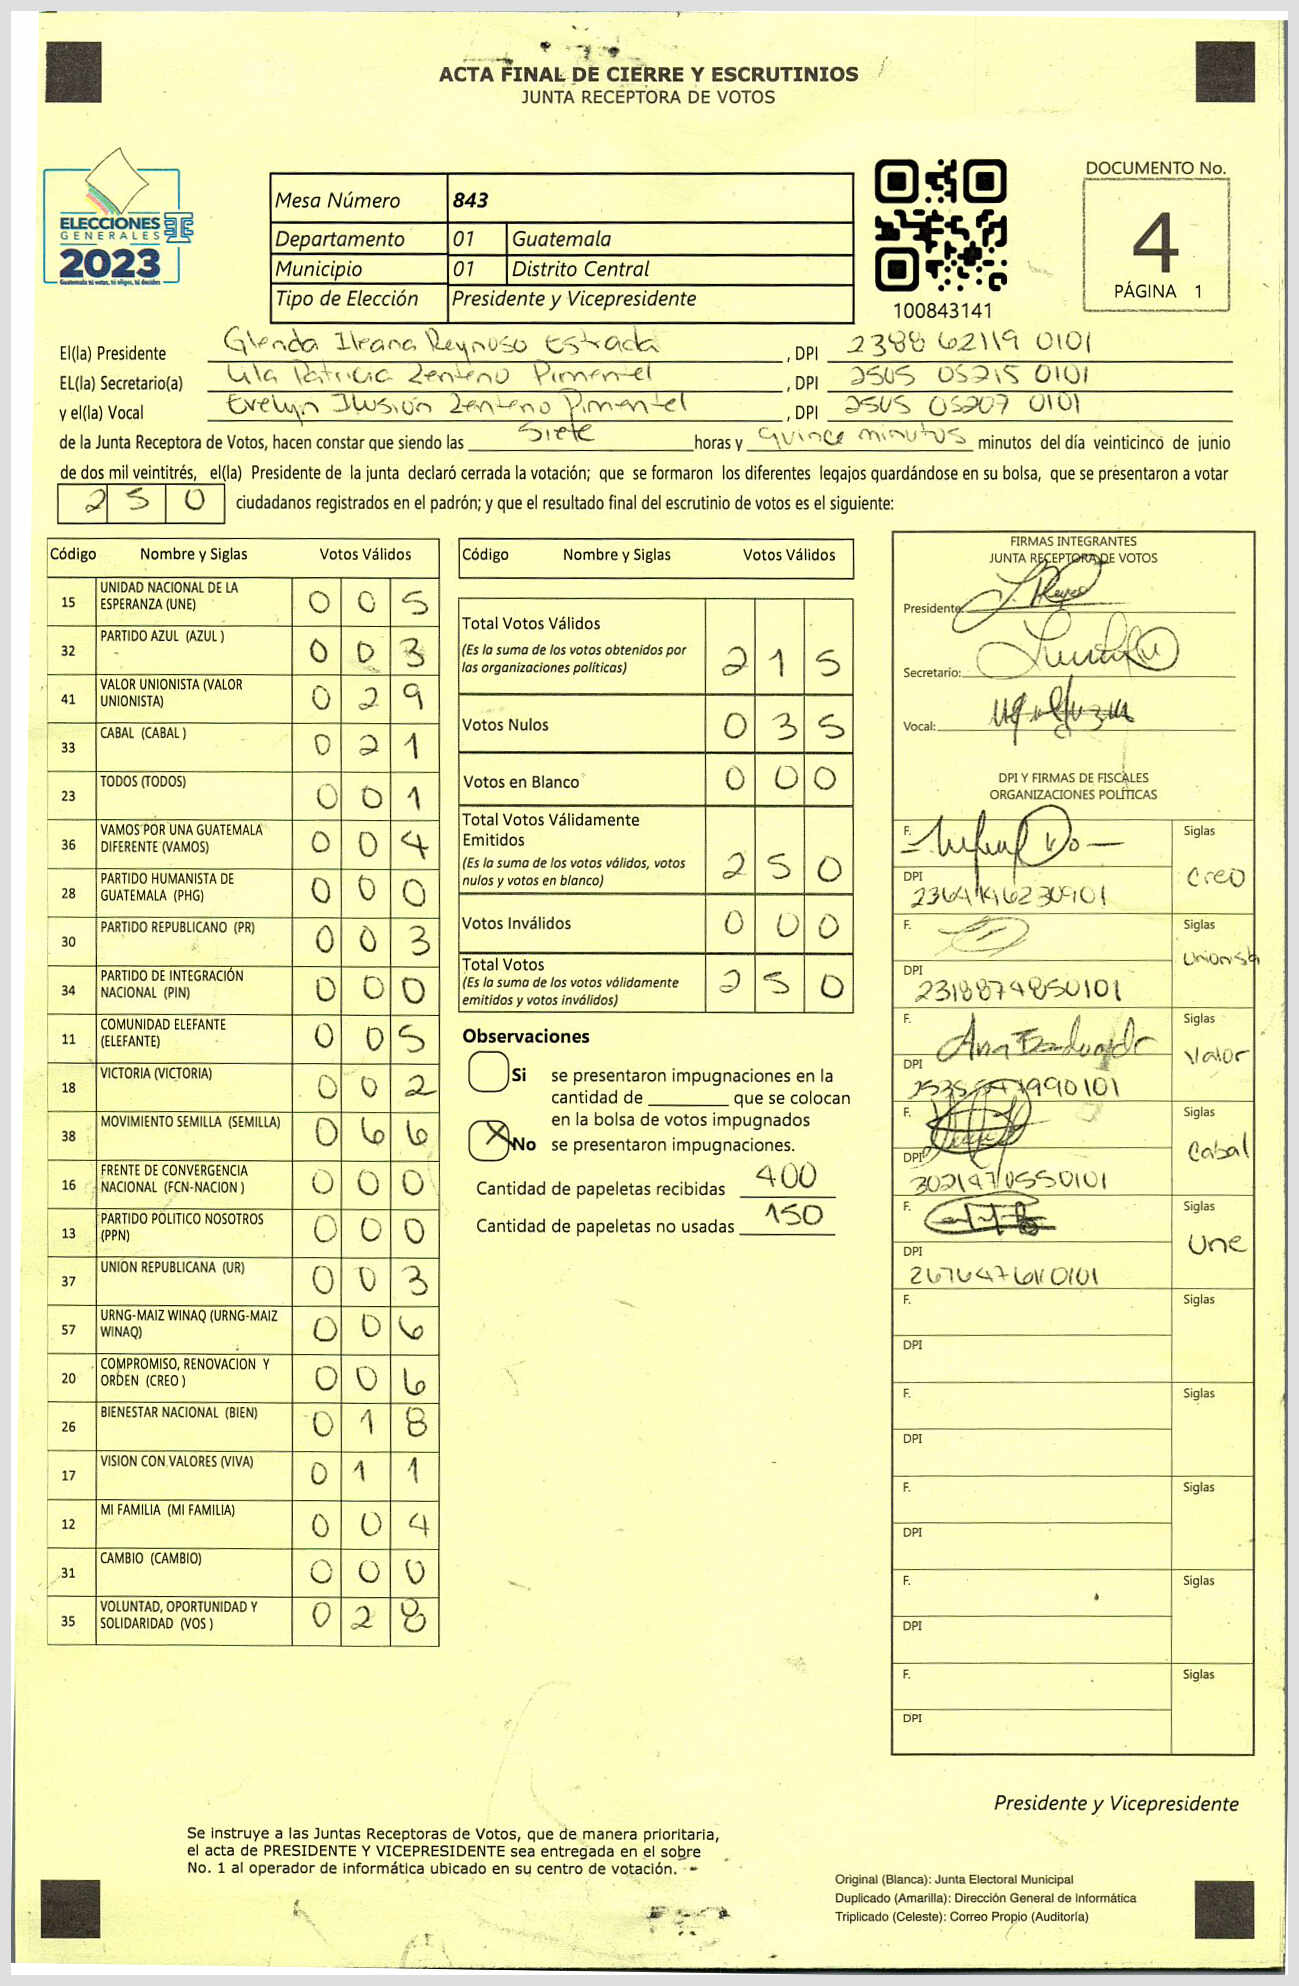 ACTA FINAL DE CIERRE Y ESCRUTINIOS
JUNTA RECEPTORA DE VOTOS
ELECCIONES
GENERALES
2023
Guatemala tú votas, tú eliges, tú decides
TSE
Mesa Número 843
Departamento 01 Guatemala
Municipio 01 Distrito Central
Tipo de Elección Presidente y Vicepresidente
100843141
DOCUMENTO No.
4
PÁGINA 1
El(la) Presidente Glenda Ileana Reynoso Estrada, DPI 2388 62119 0101
EL(la) Secretario(a) Lila Patricia Zenteno Pimentel, DPI 2505 05215 0101
y el(la) Vocal Evelyn Ilusión Zenteno Pimentel, DPI 2505 05207 0101
de la Junta Receptora de Votos, hacen constar que siendo las Siete horas y quince minutos minutos del día veinticinco de junio
de dos mil veintitrés, el(la) Presidente de la junta declaró cerrada la votación; que se formaron los diferentes legajos guardándose en su bolsa, que se presentaron a votar
250 ciudadanos registrados en el padrón; y que el resultado final del escrutinio de votos es el siguiente:
Código Nombre y Siglas Votos Válidos
15 UNIDAD NACIONAL DE LA ESPERANZA (UNE) 0 0 5
32 PARTIDO AZUL (AZUL ) 0 0 3
41 VALOR UNIONISTA (VALOR UNIONISTA) 0 2 9
33 CABAL (CABAL ) 0 2 1
23 TODOS (TODOS) 0 0 1
36 VAMOS POR UNA GUATEMALA DIFERENTE (VAMOS) 0 0 4
28 PARTIDO HUMANISTA DE GUATEMALA (PHG) 0 0 0
30 PARTIDO REPUBLICANO (PR) 0 0 3
34 PARTIDO DE INTEGRACIÓN NACIONAL (PIN) 0 0 0
11 COMUNIDAD ELEFANTE (ELEFANTE) 0 0 5
18 VICTORIA (VICTORIA) 0 0 2
38 MOVIMIENTO SEMILLA (SEMILLA) 0 6 6
16 FRENTE DE CONVERGENCIA NACIONAL (FCN-NACION ) 0 0 0
13 PARTIDO POLITICO NOSOTROS (PPN) 0 0 0
37 UNION REPUBLICANA (UR) 0 0 3
57 URNG-MAIZ WINAQ (URNG-MAIZ WINAQ) 0 0 6
20 COMPROMISO, RENOVACION Y ORDEN (CREO ) 0 0 6
26 BIENESTAR NACIONAL (BIEN) 0 1 8
17 VISION CON VALORES (VIVA) 0 1 1
12 MI FAMILIA (MI FAMILIA) 0 0 4
31 CAMBIO (CAMBIO) 0 0 0
35 VOLUNTAD, OPORTUNIDAD Y SOLIDARIDAD (VOS ) 0 2 8
Código Nombre y Siglas Votos Válidos
Total Votos Válidos
(Es la suma de los votos obtenidos por
las organizaciones políticas) 2 1 5
Votos Nulos 0 3 5
Votos en Blanco 0 0 0
Total Votos Válidamente
Emitidos
(Es la suma de los votos válidos, votos
nulos y votos en blanco) 2 5 0
Votos Inválidos 0 0 0
Total Votos
(Es la suma de los votos válidamente
emitidos y votos inválidos) 2 5 0
Observaciones
Si se presentaron impugnaciones en la
cantidad de ________ que se colocan
en la bolsa de votos impugnados
X No se presentaron impugnaciones.
Cantidad de papeletas recibidas 400
Cantidad de papeletas no usadas 150
FIRMAS INTEGRANTES
JUNTA RECEPTORA DE VOTOS
Presidente:
Secretario:
Vocal:
DPI Y FIRMAS DE FISCALES
ORGANIZACIONES POLÍTICAS
F. Siglas
DPI Creo
F. Siglas
Unionista
DPI 2318874850101
F. Siglas
DPI Valor
F. Siglas
DPI Cabal
F. Siglas
Une
DPI
F. Siglas
DPI
F. Siglas
DPI
F. Siglas
DPI
F. Siglas
DPI
F. Siglas
DPI
Presidente y Vicepresidente
Se instruye a las Juntas Receptoras de Votos, que de manera prioritaria,
el acta de PRESIDENTE Y VICEPRESIDENTE sea entregada en el sobre
No. 1 al operador de informática ubicado en su centro de votación.
Original (Blanca): Junta Electoral Municipal
Duplicado (Amarilla): Dirección General de Informática
Triplicado (Celeste): Correo Propio (Auditoría)